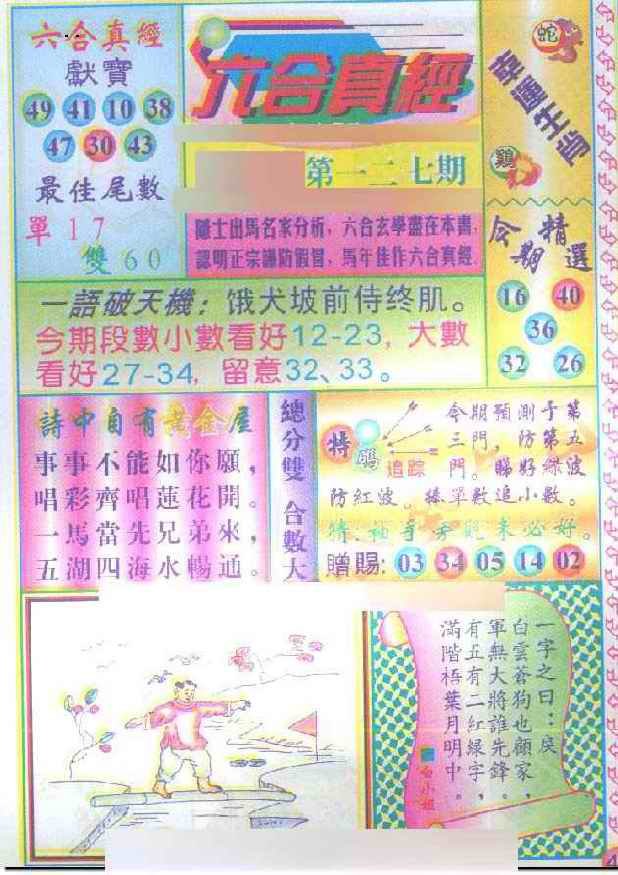 六合真經
獻寶
49 41 10 38
47 30 43
最佳尾數
單 1 7
雙 6 0
六合真經
第一二七期
隱士出馬名家分析，六合玄學盡在本書，
認明正宗謹防假冒，馬年佳作六合真經。
蛇
鷄
今期精選
16 40
36
32 26
一語破天機：饿犬坡前侍终肌。
今期段數小數看好12-23，大數
看好27-34，留意32、33。
詩中自有黃金屋
事事不能如你願，
唱彩齊唱蓮花開。
一馬當先兄弟來，
五湖四海水暢通。
總分雙 合數大
特碼
追踪
今期預測于第
三門，防第五
門。睇好綠波
防紅波。捧單數追小數。
贈賜：03 34 05 14 02
一字之曰：戾
白雲蒼狗也顧家，
軍無大將誰先鋒，
有五有二紅綠字，
滿階梧葉月明中。